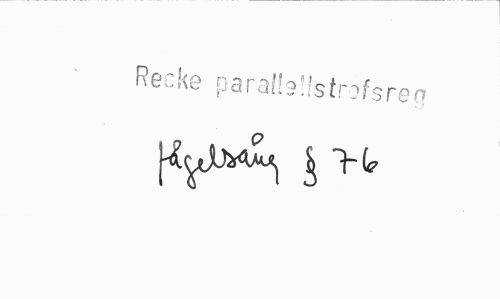 Recke parallellstrofsreg
fågelsång § 76